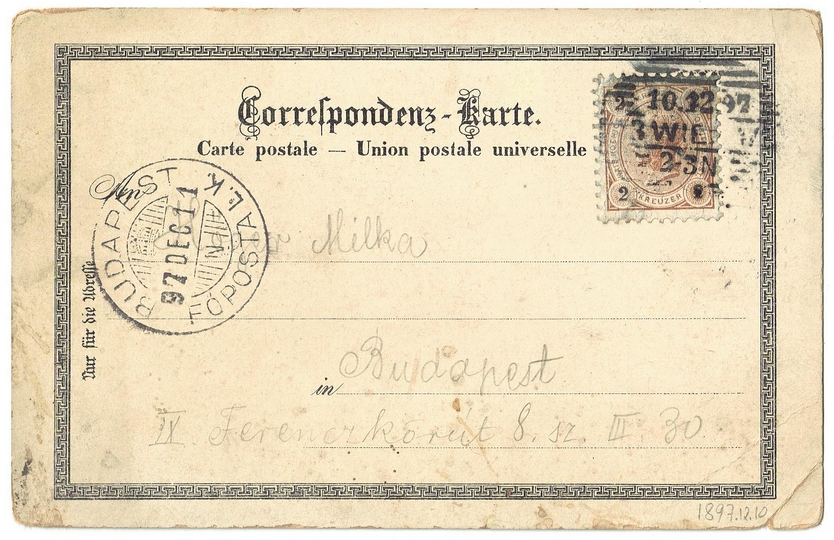 Correspondenz-Karte.
Carte postale — Union postale universelle
10.12 97
3 WIE
2-3N
2 2
KREUZER
An
BUDAPEST FŐPOSTA L.K.
97 DEC 11
Milka
Nur für die Adresse
in Budapest
IX. Ferenczkörút 8. sz. III. 30
1897.12.10